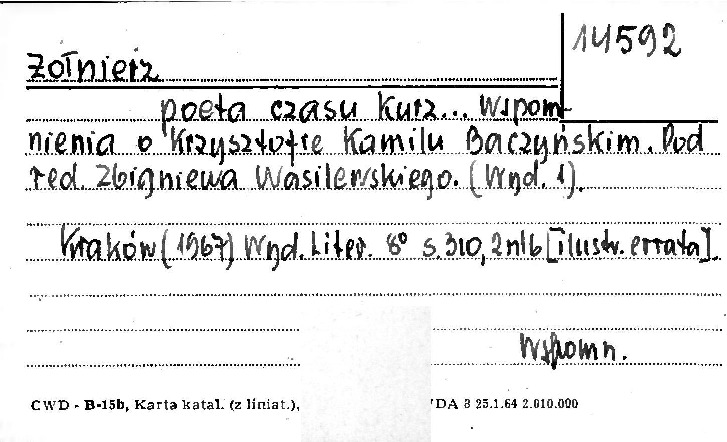 14592
Żołnierz
poeta czasu kurz... Wspom-
nienia o Krzysztofie Kamilu Baczyńskim. Pod
red. Zbigniewa Wasilewskiego. (Wyd. 1).
Kraków (1967) Wyd. Liter. 8° s. 310, 2 nlb [ilustr. errata].
Wspomn.
CWD - B-15b, Karta katal. (z liniat.), DA 8 25.1.64 2.010.000